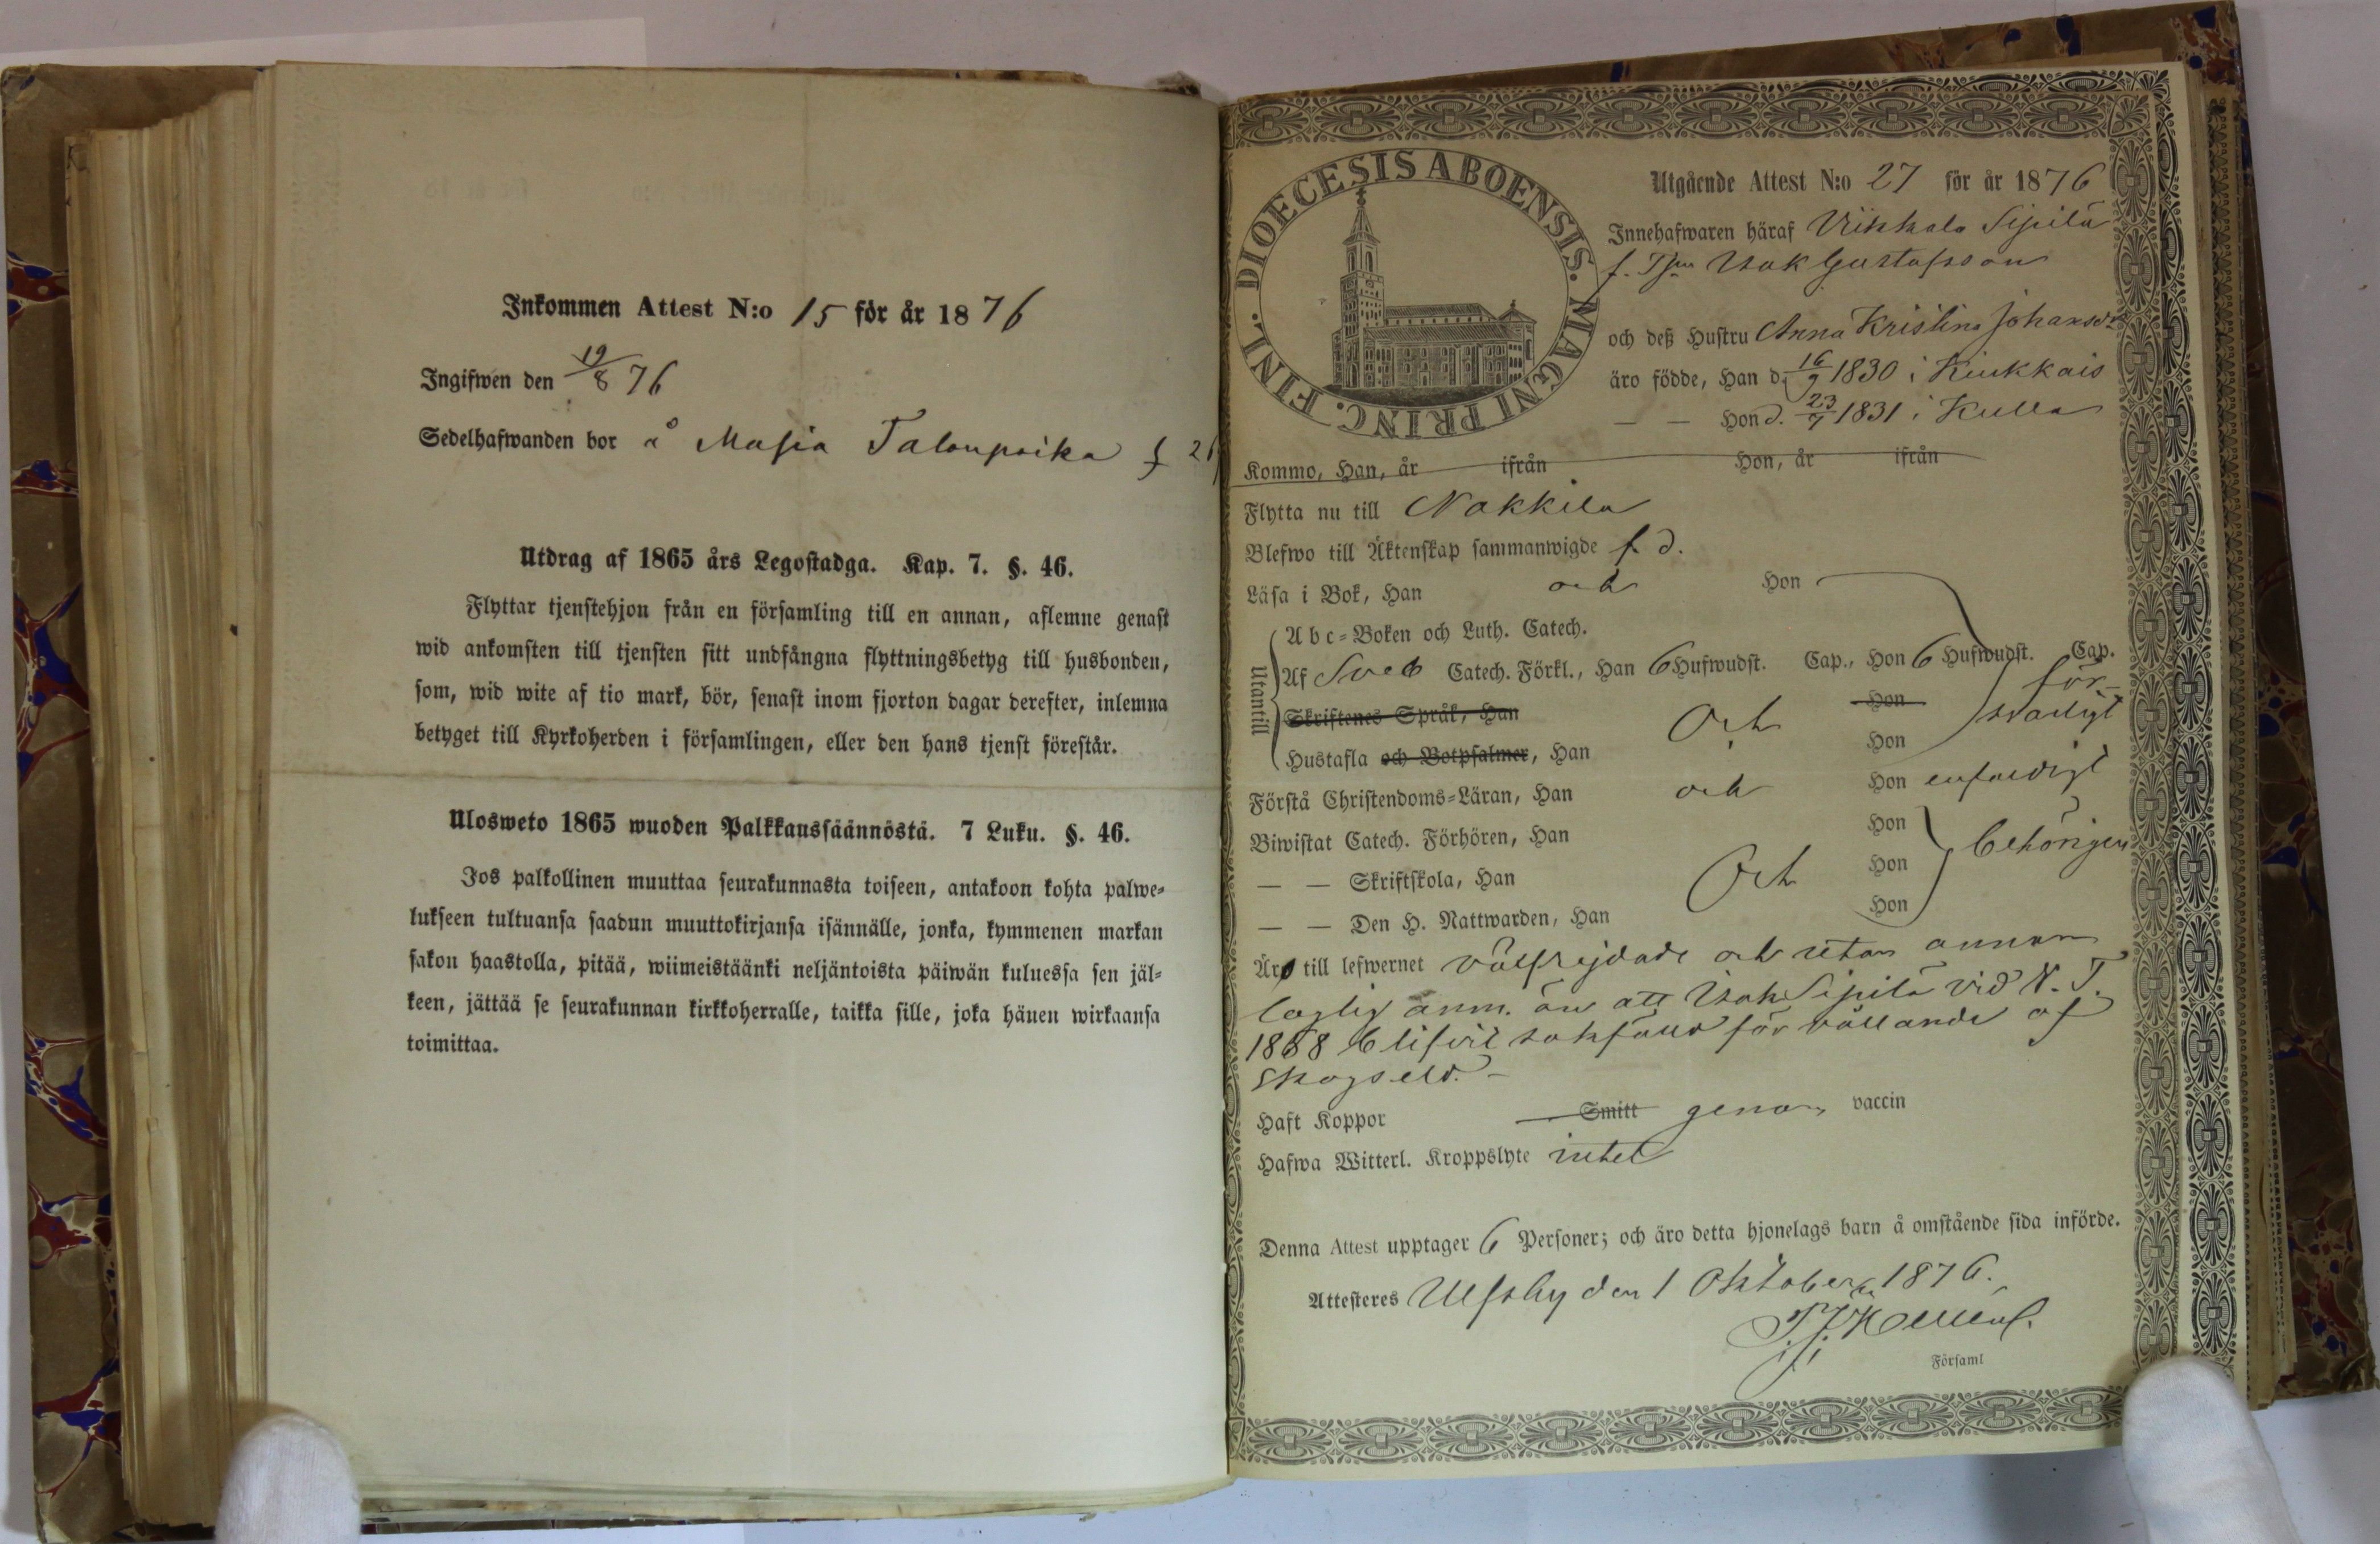 Inkommen Attest N:o 15 för år 1876
Ingifwen den 19/8 76
Sedelhafwanden bor å Masia Talonpoika f 26
Utdrag af 1865 års Legostadga. Kap. 7. §. 46.
Flyttar tjenstehjon från en församling till en annan, aflemne genast
wid ankomsten till tjensten sitt undfångna flyttningsbetyg till husbonden,
som, wid wite af tio mark, bör, senast inom fjorton dagar derefter, inlemna
betyget till Kyrkoherden i församlingen, eller den hans tjenst förestår.
Ulosweto 1865 wuoden Palkkaussäännöstä. 7 Luku. §. 46.
Jos palkollinen muuttaa seurakunnasta toiseen, antakoon kohta palwe-
lukseen tultuansa saadun muuttokirjansa isännälle, jonka, kymmenen markan
sakon haastolla, pitää, wiimeistäänki neljäntoista päiwän kuluessa sen jäl-
keen, jättää se seurakunnan kirkkoherralle, taikka sille, joka hänen wirkaansa
toimittaa.
DIOECESIS ABOENSIS. MAGNI PRINC. FINL.
Utgående Attest N:o 27 för år 1876
Innehafwaren häraf Viikkala Sipilä
f. Isak Gustafsson
och deß Hustru Anna Kristina Johansdr
äro födde, Han d. 16/9 1830 i Kiukkais
— — Hon d. 23/7 1831 i Kulla
Kommo, Han, år ifrån Hon, år ifrån
Flytta nu till Nakkila
Blefwo till Äktenskap sammanwigde f. d.
Läsa i Bok, Han och Hon
Utantill
Abc-Boken och Luth. Catech.
Af Sveb Catech. Förkl., Han 6 Hufwudst. Cap., Hon 6 Hufwudst. Cap.
Skriftenes Språk, Han Och Hon för-
svarligt
Hustafla och Botpsalmer, Han Hon
Förstå Christendoms-Läran, Han och Hon enfaldigt
Biwistat Catech. Förhören, Han Hon
— — Skriftskola, Han Och Hon behörigen
— — Den H. Nattwarden, Han Hon
Äro till lefwernet välfrejdade och utan annan
laglig anm. än att Isak Sipilä vid V. T.
1868 blifvit sakfälld för vållande af
skogseld. –
Haft Koppor Smitt genom vaccin
Hafwa Witterl. Kroppslyte intet
Denna Attest upptager 6 Personer; och äro detta hjonelags barn å omstående sida införde.
Attesteres Ulfsby den 1 Oktober 1876.
Församl